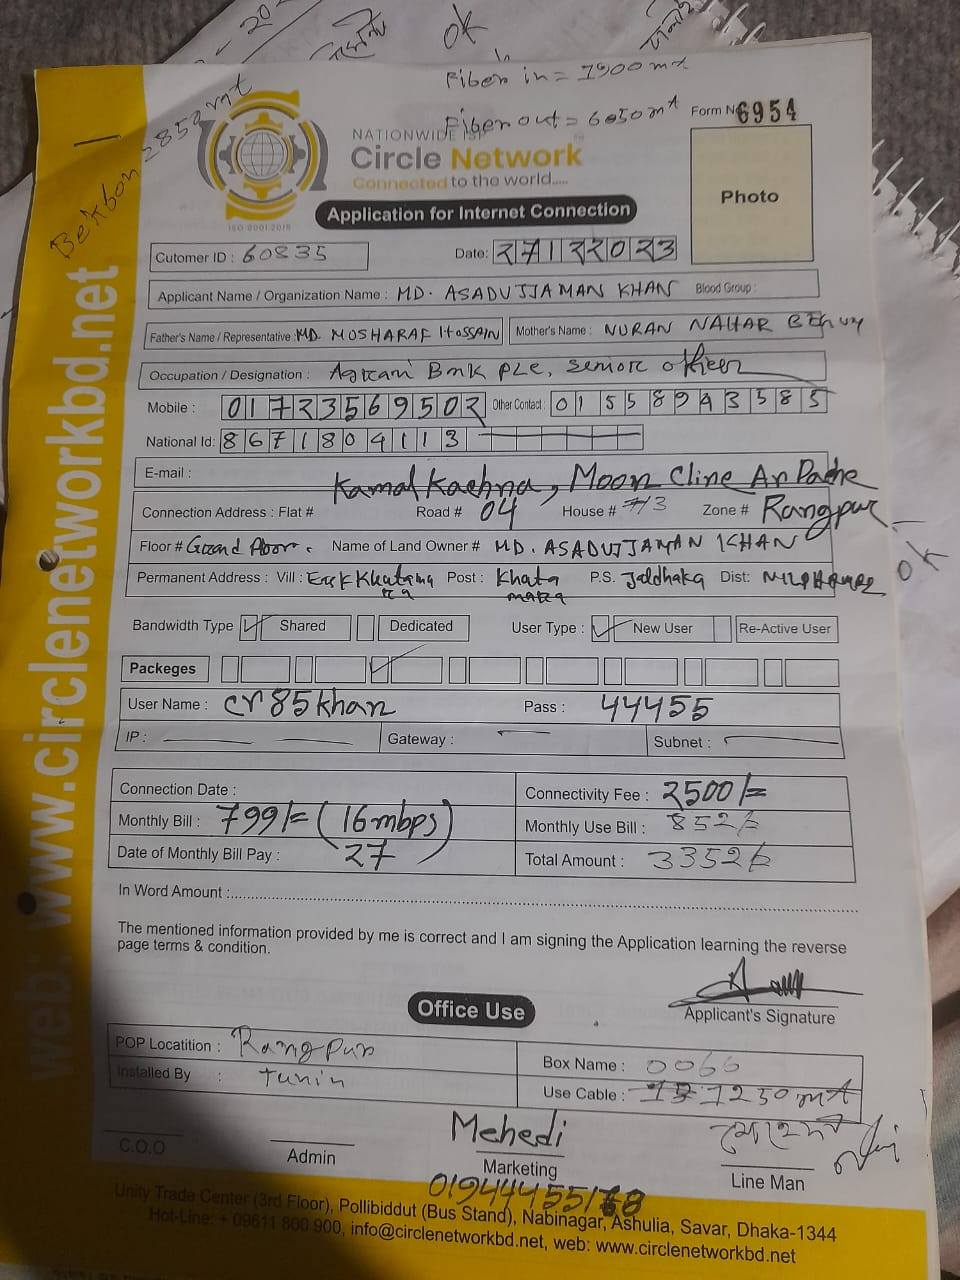 ok
Fiber in = 1900 mt
Fiber out = 6050 mt
Form No 6954
NATIONWIDE ISP
Circle Network
Connected to the world.....
ISO 9001:2015
Application for Internet Connection
Photo
Cutomer ID : 60835
Date: 27122023
Applicant Name / Organization Name : MD. ASADUJJAMAN KHAN Blood Group :
Father's Name / Representative : MD. MOSHARAF HOSSAIN Mother's Name : NURAN NAHAR
Occupation / Designation : Agrani Bank PLC, Senior officer
Mobile : 01723569502 Other Contact : 01558943585
National Id: 8671804113
E-mail :
Kamal Kachna, Moon Cline
Connection Address : Flat # Road # 04 House # Zone # Rangpur
Floor # Ground Floor. Name of Land Owner # MD. ASADUJJAMAN KHAN
ok
Permanent Address : Vill : Post : Khata mara P.S. Jaldhaka Dist: NILPHAMARI
Bandwidth Type Shared Dedicated User Type : New User Re-Active User
Packeges
User Name : cr85khan Pass : 44455
IP : Gateway : Subnet :
Connection Date : Connectivity Fee : 2500/=
Monthly Bill : 799/= (16mbps) Monthly Use Bill : 852/=
Date of Monthly Bill Pay : 27 Total Amount : 3352/=
In Word Amount :
The mentioned information provided by me is correct and I am signing the Application learning the reverse
page terms & condition.
Applicant's Signature
Office Use
POP Locatition : Rangpur Box Name : 0066
Installed By : Tunin Use Cable : 1250 mt
C.O.O
Admin
Mehedi
Marketing
Line Man
Unity Trade Center (3rd Floor), Pollibiddut (Bus Stand), Nabinagar, Ashulia, Savar, Dhaka-1344
Hot-Line: + 09611 800 900, info@circlenetworkbd.net, web: www.circlenetworkbd.net
web: www.circlenetworkbd.net